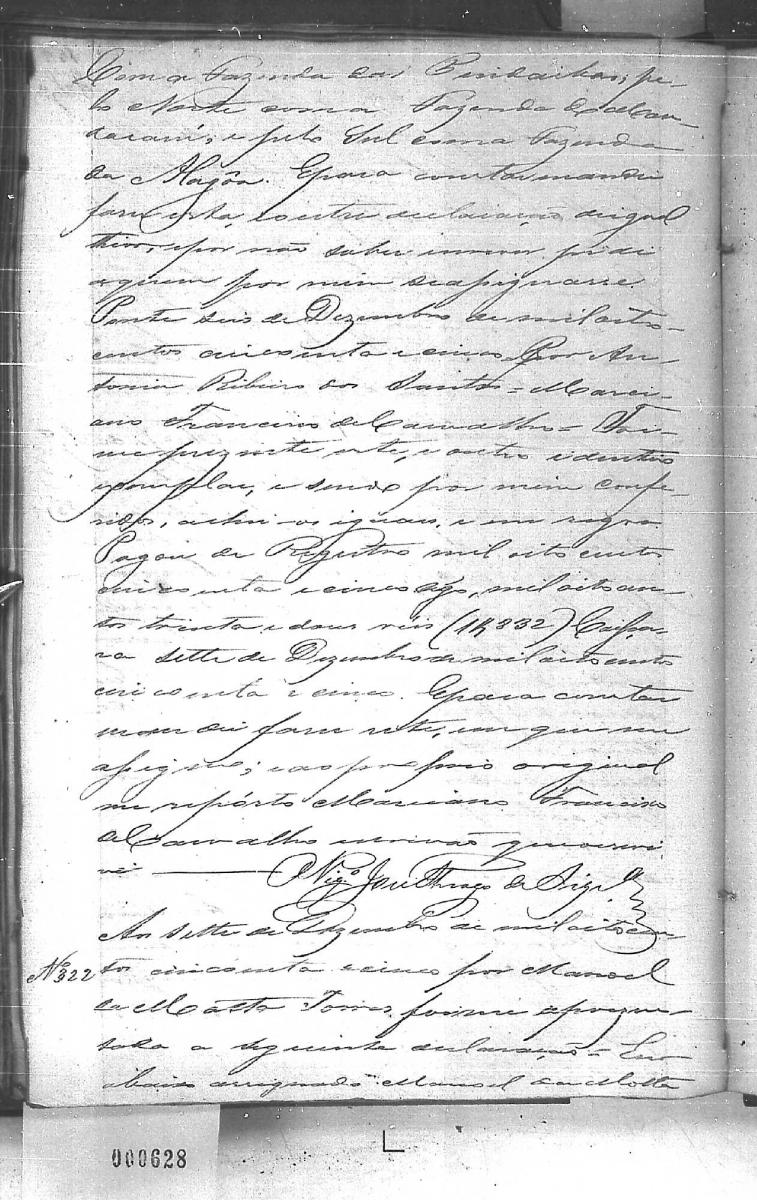 Com a Fazenda das Pindaibas; pe-
lo Norte com a Fazenda do
e pelo Sul com a Fazenda
da Alagôa. E para constar mandei
fazer esta, e outra declaração de igual
thior, e por não saber escrever pedi
a quem por mim se assignasse.
Ponte seis de Dezembro de mil oito-
centos cincoenta e cinco. Por An-
tonio Ribeiro dos Santos = Marci-
ano Francisco de Carvalho = Foi-
me prezente este, e outro identico
exemplar, e sendo por mim confe-
ridos, achei-os iguaes, e em regra
Pagou de Registro mil oito centos
cincoenta e cinco digo, mil oitocen-
tos trinta e dous reis (1\$832)
sette de Dezembro de mil oitocentos
cincoenta e cinco. E para constar
mandei fazer este, em que me
assigno; e ao proprio original
me repórto Marciano Francisco
de Carvalho escrivão que escre-
vi — O Vigr.º José Thiago de Siqr.ª
Aos sette de Dezembro de mil oito cen-
Nº 322 tos cincoenta e cinco por Manoel
da Motta Torres, foi me aprezen-
tada a seguinte declaração = Eu
abaixo assignado Manoel da Motta
000628